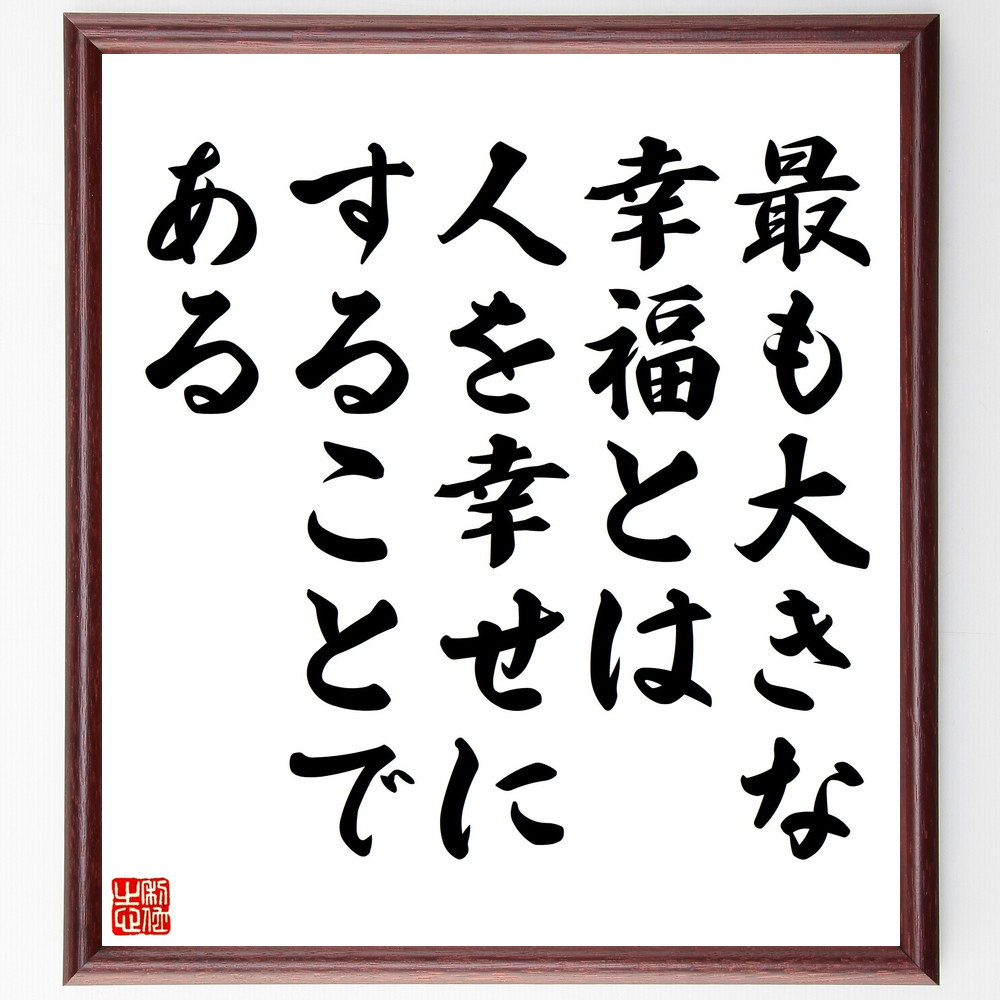 最も大きな
幸福とは
人を幸せに
することで
ある